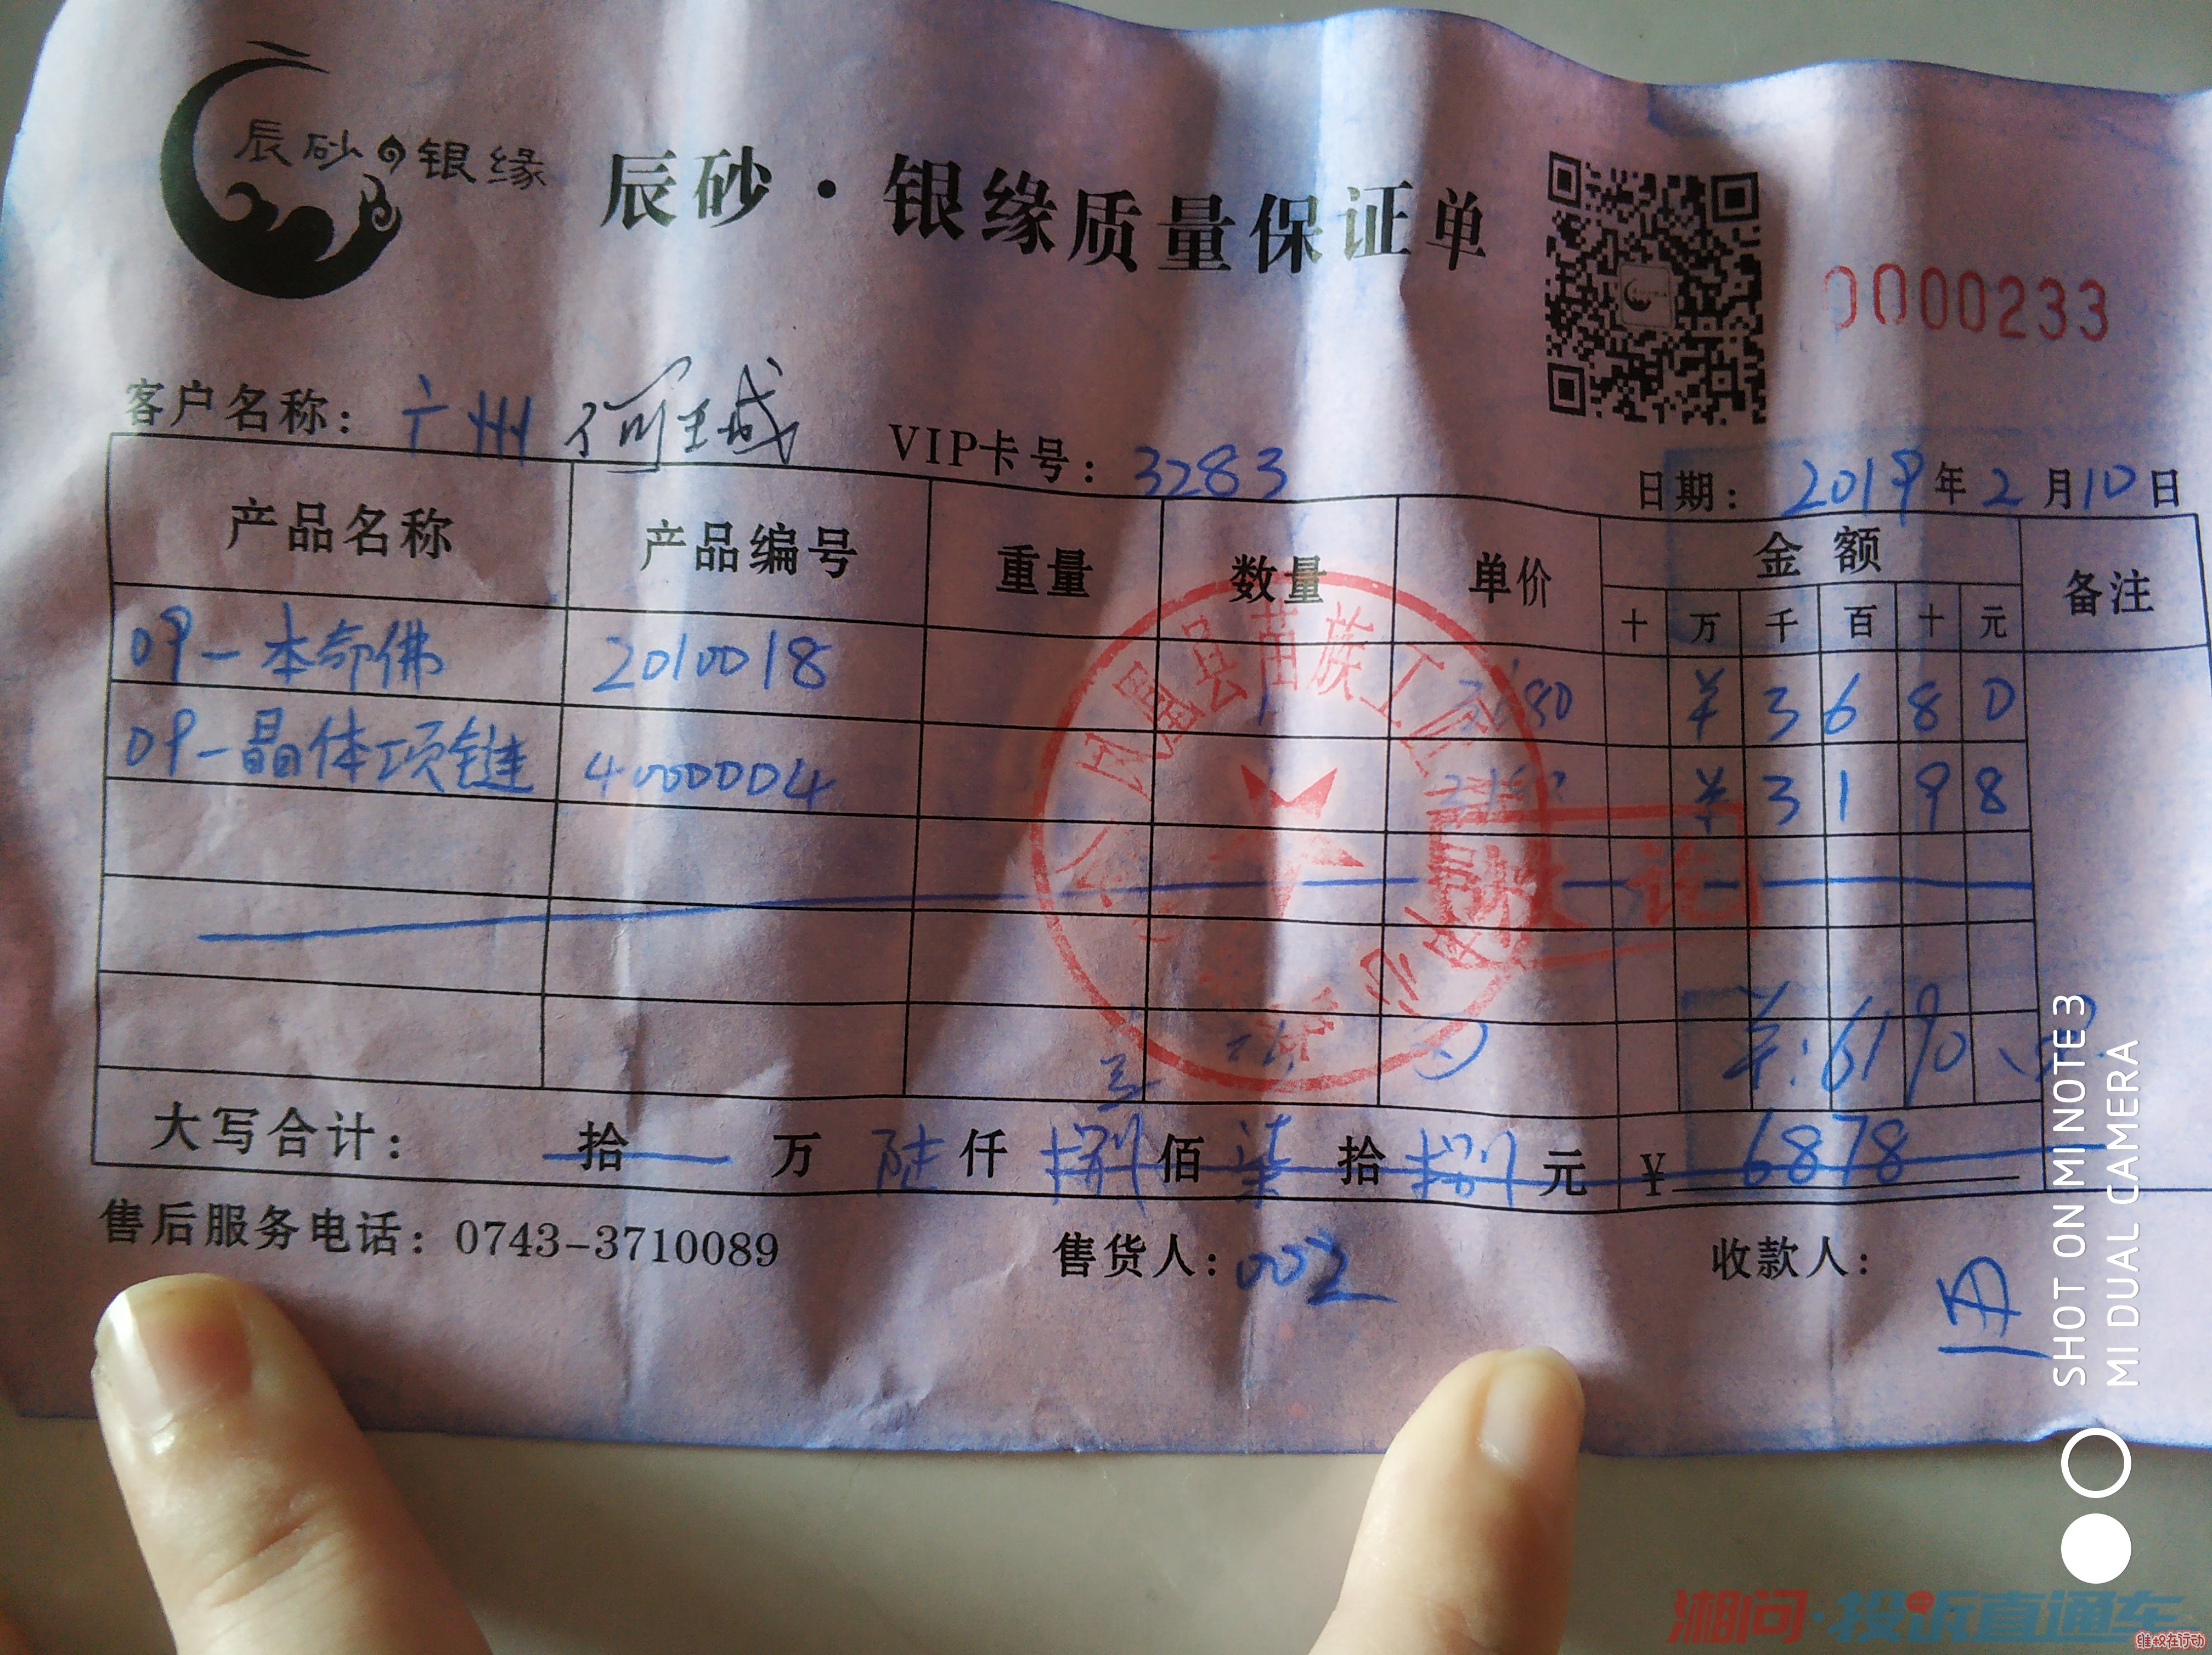 辰砂 银缘
辰砂·银缘质量保证单
0000233
客户名称: 广州 何
VIP卡号: 3283
日期: 2019年2月10日
产品名称 产品编号 重量 数量 单价 金额 备注
十 万 千 百 十 元
09-本命佛 2010018 1 3680 ¥ 3 6 8 0
09-晶体项链 4000004 ¥ 3 1 9 8
凤凰县苗族工
¥:6190
大写合计: 拾 万 陆 仟 捌 佰 柒 拾 捌 元 ¥ 6878
售后服务电话: 0743-3710089 售货人: 002 收款人:
SHOT ON MI NOTE 3
MI DUAL CAMERA
湘问·投诉直通车
维权在行动